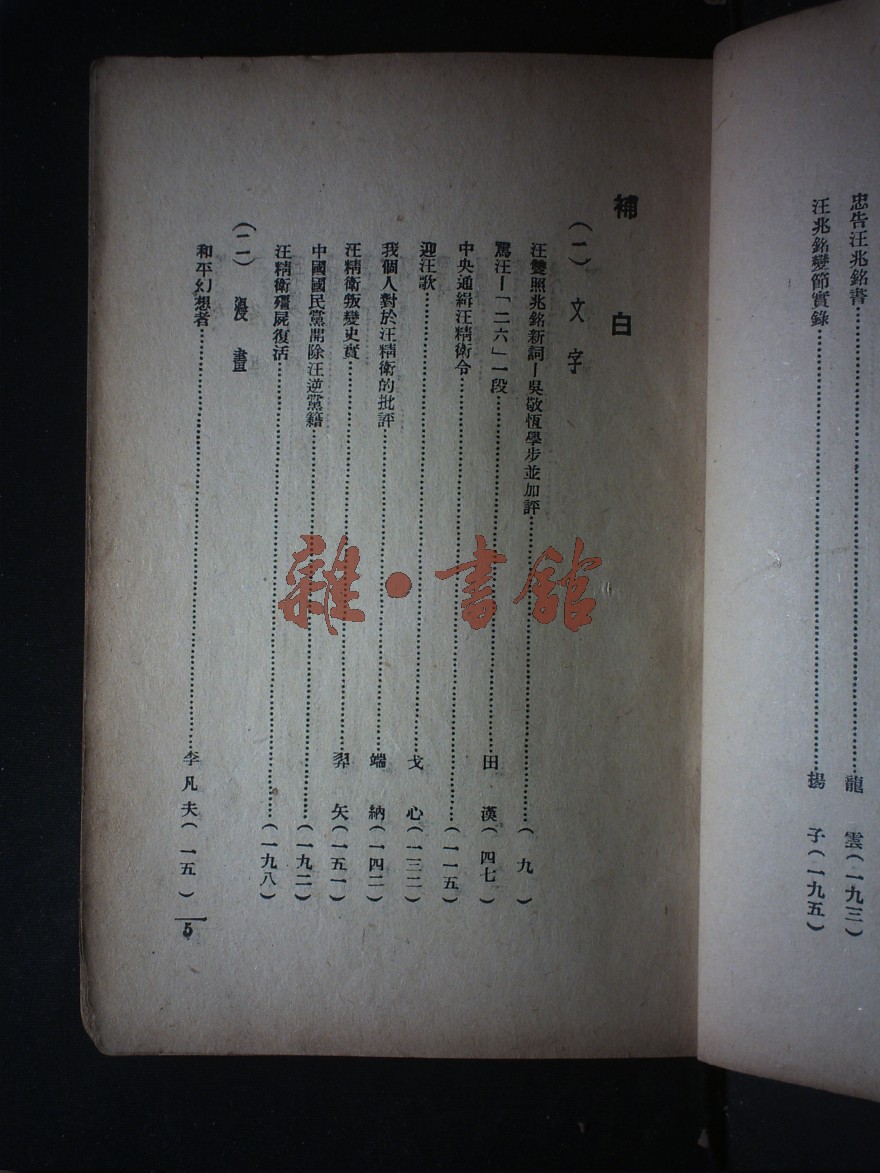 忠告汪兆銘書……龍雲(一九三)
汪兆銘變節實錄……揚子(一九五)
補白
(一)文字
汪雙照兆銘新詞—吳敬恆學步並加評……(九)
罵汪—「二六」一段……田漢(四七)
中央通緝汪精衛令……(一一五)
迎汪歌……戈心(一三二)
我個人對於汪精衛的批評……端納(一四二)
汪精衛叛變史實……羿矢(一五一)
中國國民黨開除汪逆黨籍……(一九二)
汪精衛殭屍復活……(一九八)
(二)漫畫
和平幻想者……李凡夫(一五)
5
雜·書館